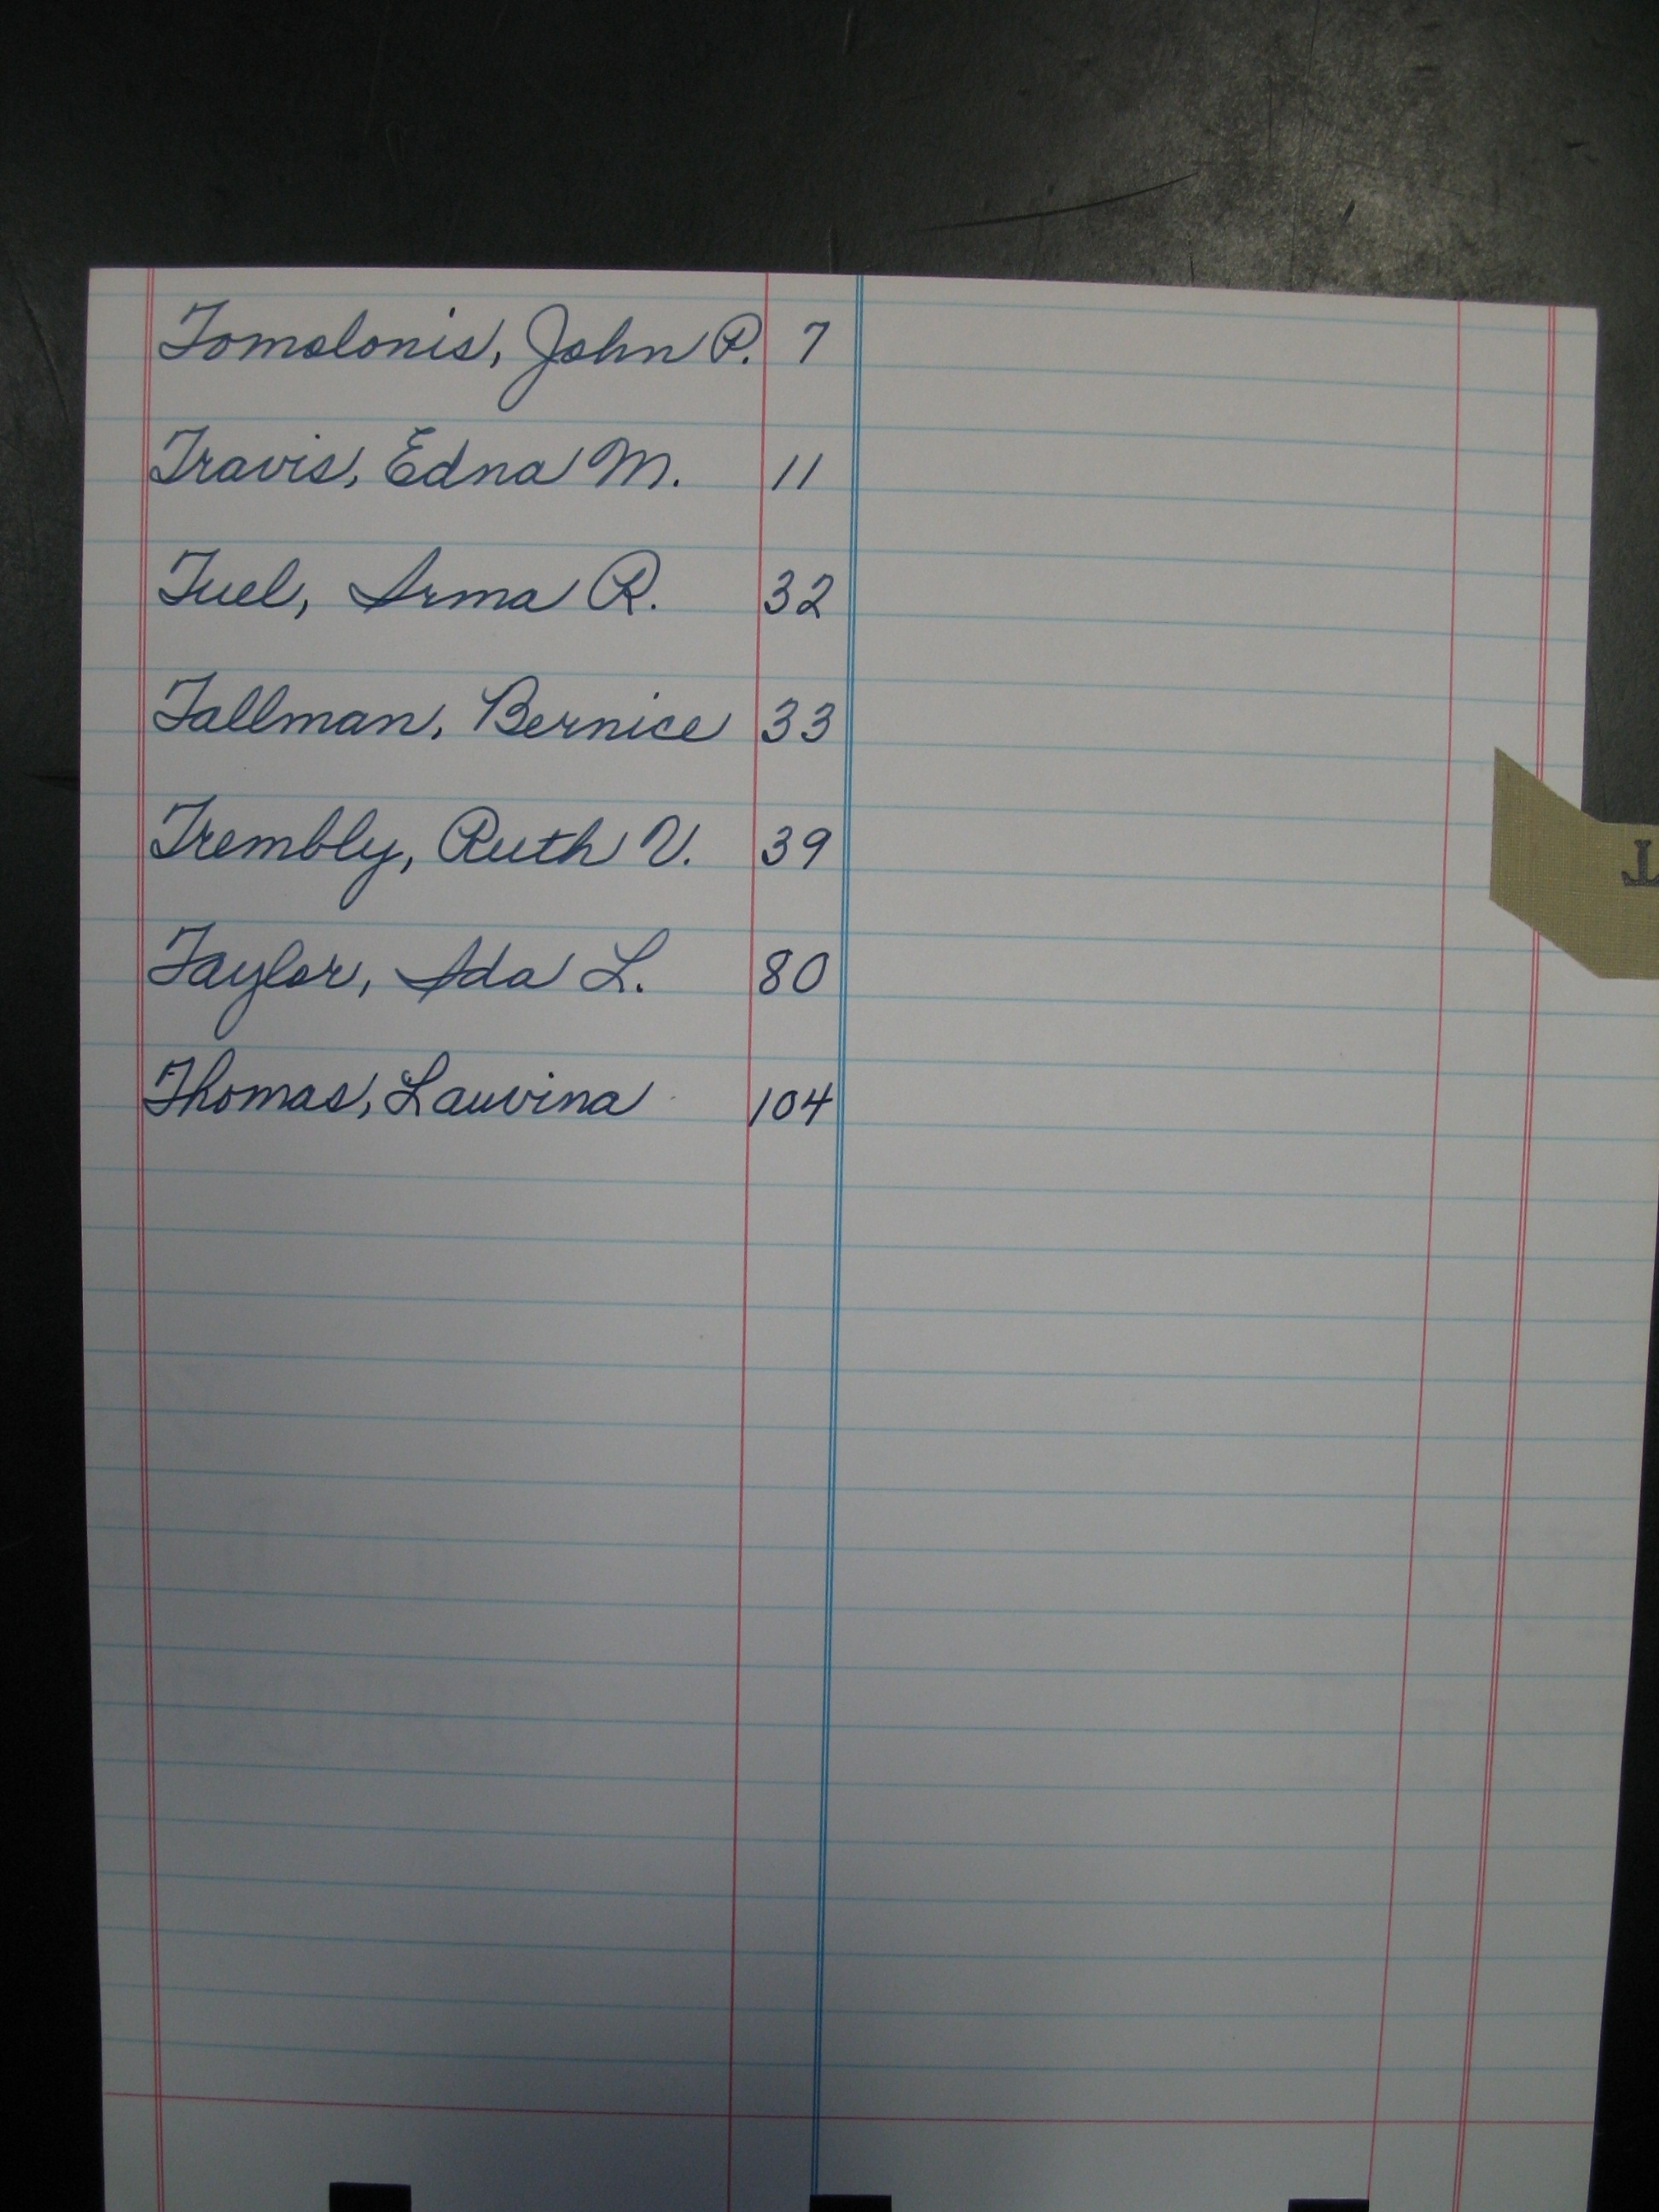 Tomolonis, John P. 7
Travis, Edna M. 11
Tuel, Arma R. 32
Tallman, Bernice 33
Trembly, Ruth V. 39
T
Taylor, Ada L. 80
Thomas, Lauvina 104